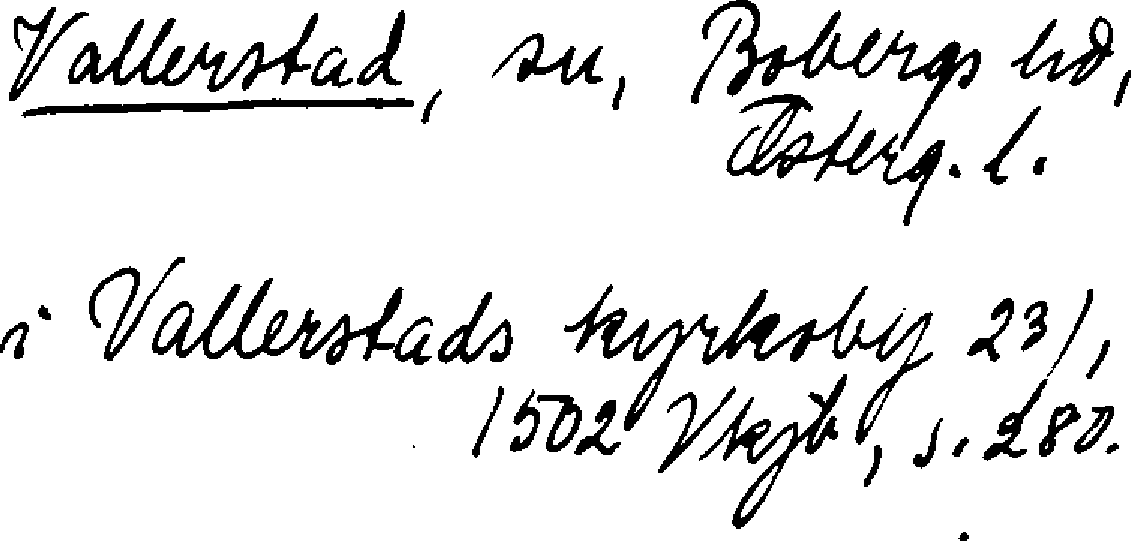 Vallerstad, sn, Bobergs hd,
Österg. l.
i Vallerstads kyrkoby 23/,
1502 Vkjb, s. 280.